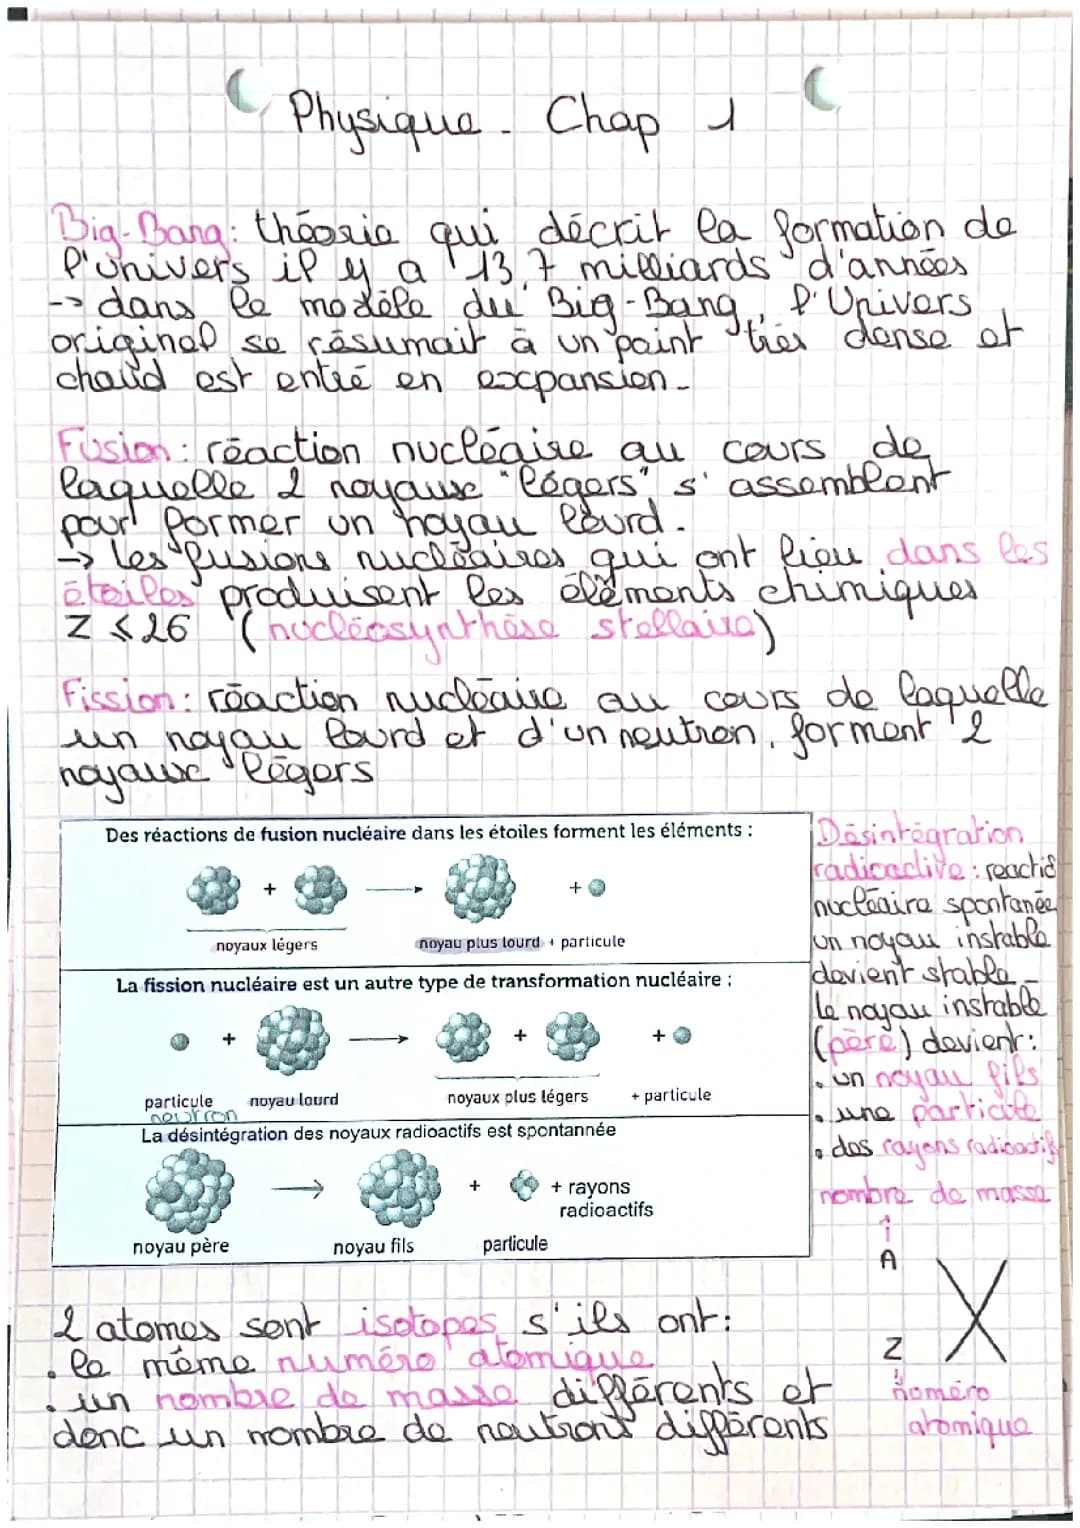 Physique - Chap 1
Big-Bang: théorie qui décrit la formation de
l'univers il y a 13,7 milliards d'années
-> dans le modèle du Big-Bang, l'Univers
original se résumait à un point très dense et
chaud est entré en expansion.
Fusion: réaction nucléaire au cours de
laquelle 2 noyaux "légers" s'assemblent
pour former un noyau lourd.
-> les fusions nucléaires qui ont lieu dans les
étoiles produisent les éléments chimiques
Z ⩽ 26 (nucléosynthèse stellaire)
Fission: réaction nucléaire au cours de laquelle
un noyau lourd et d'un neutron, forment 2
noyaux légers
Des réactions de fusion nucléaire dans les étoiles forment les éléments :
+ +
noyaux légers noyau plus lourd + particule
La fission nucléaire est un autre type de transformation nucléaire :
+ + +
particule noyau lourd noyaux plus légers + particule
neutron
La désintégration des noyaux radioactifs est spontannée
+ + rayons
radioactifs
noyau père noyau fils particule
Désintégration
radioactive: reactio
nucléaire spontanée
un noyau instable
devient stable -
le noyau instable
(père) devient:
. un noyau fils
. une particule
. des rayons radioactifs
nombre de masse
A
X
Z
numéro
atomique
2 atomes sont isotopes s'ils ont:
. le même numéro atomique
. un nombre de masse différents et
donc un nombre de neutrons différents